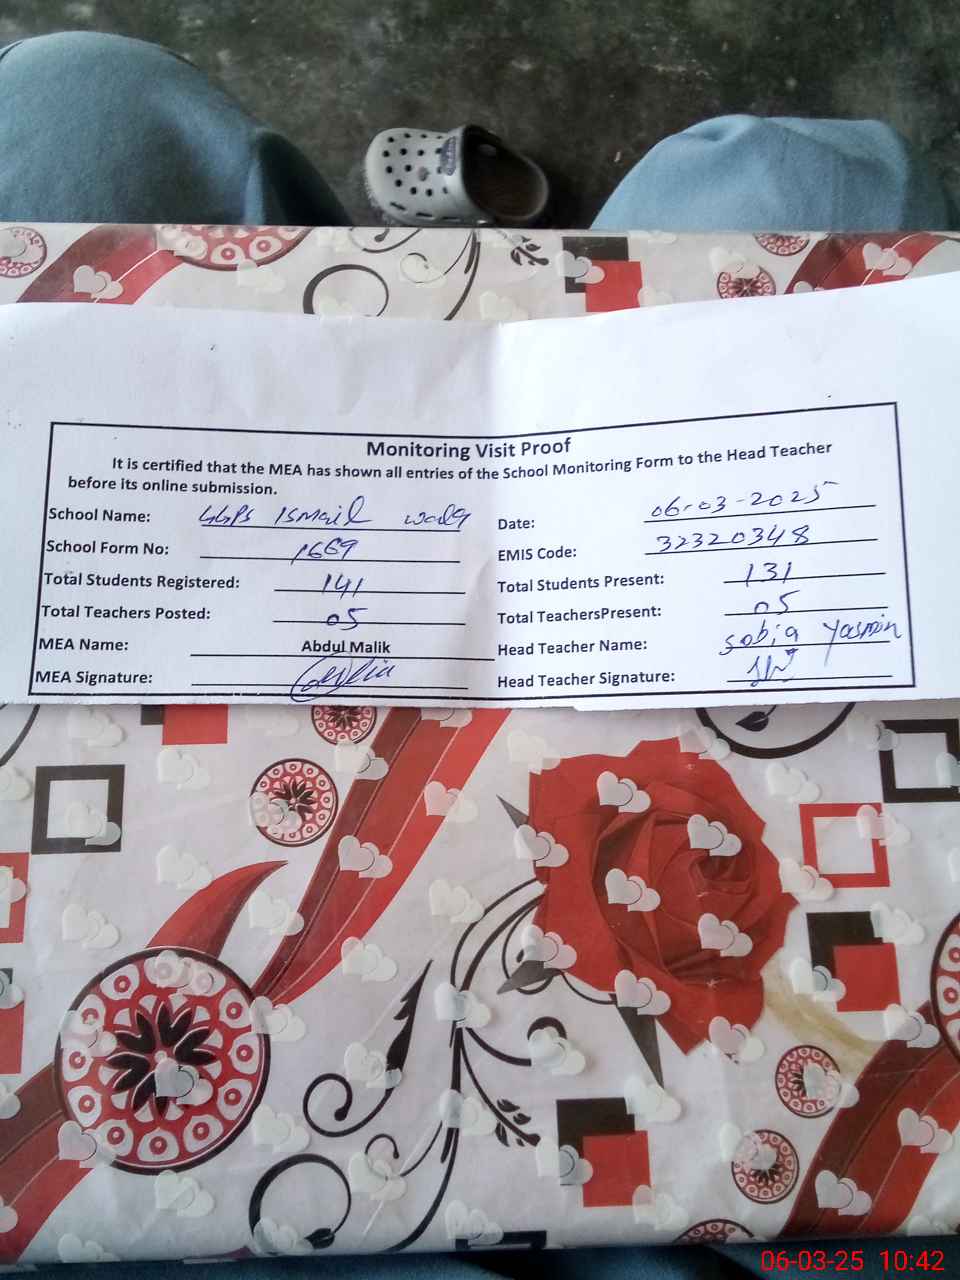 Monitoring Visit Proof
It is certified that the MEA has shown all entries of the School Monitoring Form to the Head Teacher
before its online submission.
School Name: GGPS Ismail wala
Date: 06-03-2025
School Form No: 1669
EMIS Code: 32320348
Total Students Registered: 141
Total Students Present: 131
Total Teachers Posted: 05
Total TeachersPresent: 05
MEA Name: Abdul Malik
Head Teacher Name: Sobia Yasmin
MEA Signature:
Head Teacher Signature:
06-03-25 10:42